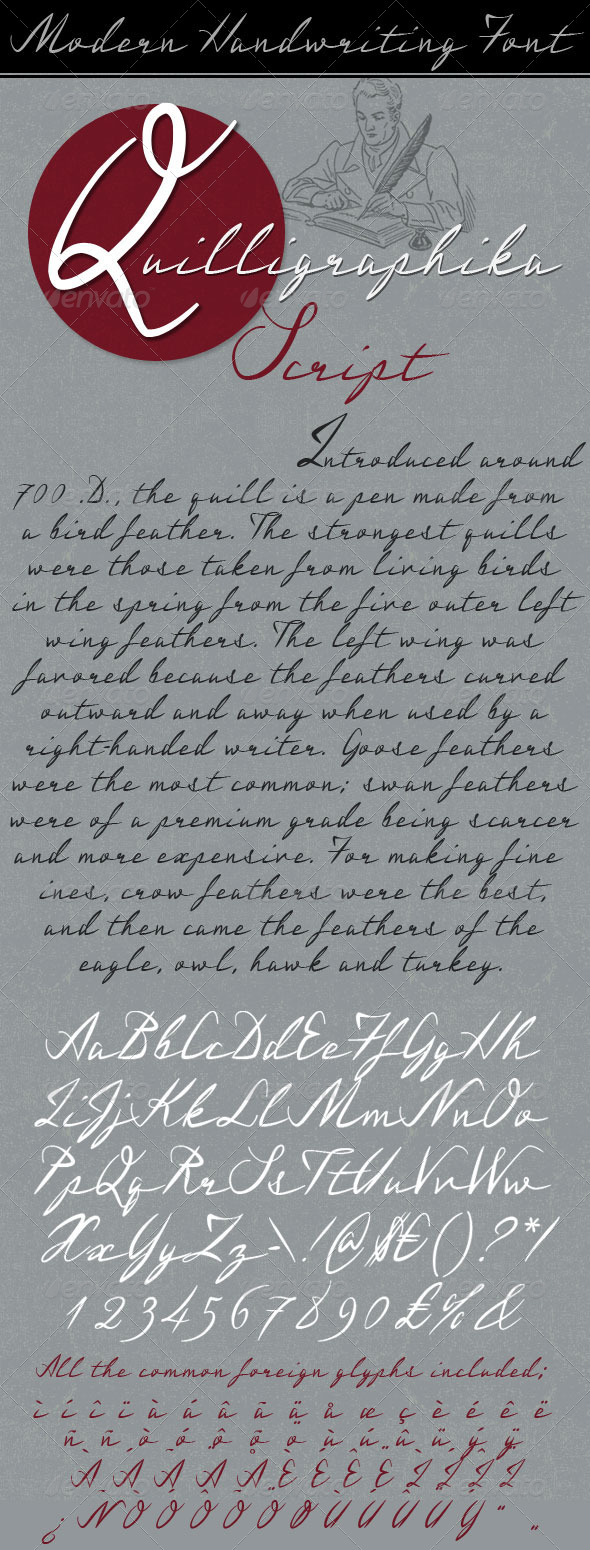 Modern Handwriting Font
Quilligraphika
Script
Introduced around
700 .D., the quill is a pen made from
a bird feather. The strongest quills
were those taken from living birds
in the spring from the five outer left
wing feathers. The left wing was
favored because the feathers curved
outward and away when used by a
right-handed writer. Goose feathers
were the most common; swan feathers
were of a premium grade being scarcer
and more expensive. For making fine
ines, crow feathers were the best,
and then came the feathers of the
eagle, owl, hawk and turkey.
AaBbCcDdEeFfGgHh
IiJjKkLlMmNnOo
PpQqRrSsTtUuVvWw
XxYyZz-\!@$€()?*/
1234567890£%&
All the common foreign glyphs included;
ì í î ï à á â ã ä å æ ç è é ê ë
ñ ñ ò ó ô õ ö ù ú û ü ű ý ÿ
À Á Â Ã Ä Å È É Ê Ë Ì Í Î Ï
¿ Ñ Ò Ó Ô Õ Ö Ø Ù Ú Û Ü Ý " „
envato